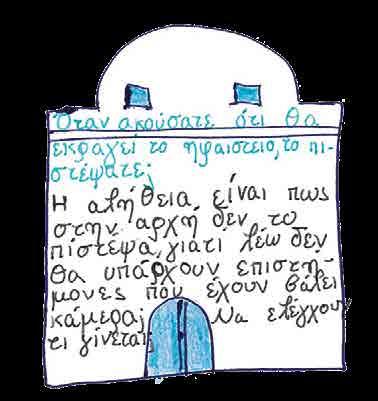 Όταν ακούσατε ότι θα
εκραγεί το ηφαιστειο, το πι-
στέψατε;
Η αλήθεια είναι πως
στην αρχή δεν το
πίστεψα, γιατί λέω δεν
θα υπάρχουν επιστή-
μονες που έχουν βάλει
κάμερα; Να ελέγχουν
τι γίνεται;